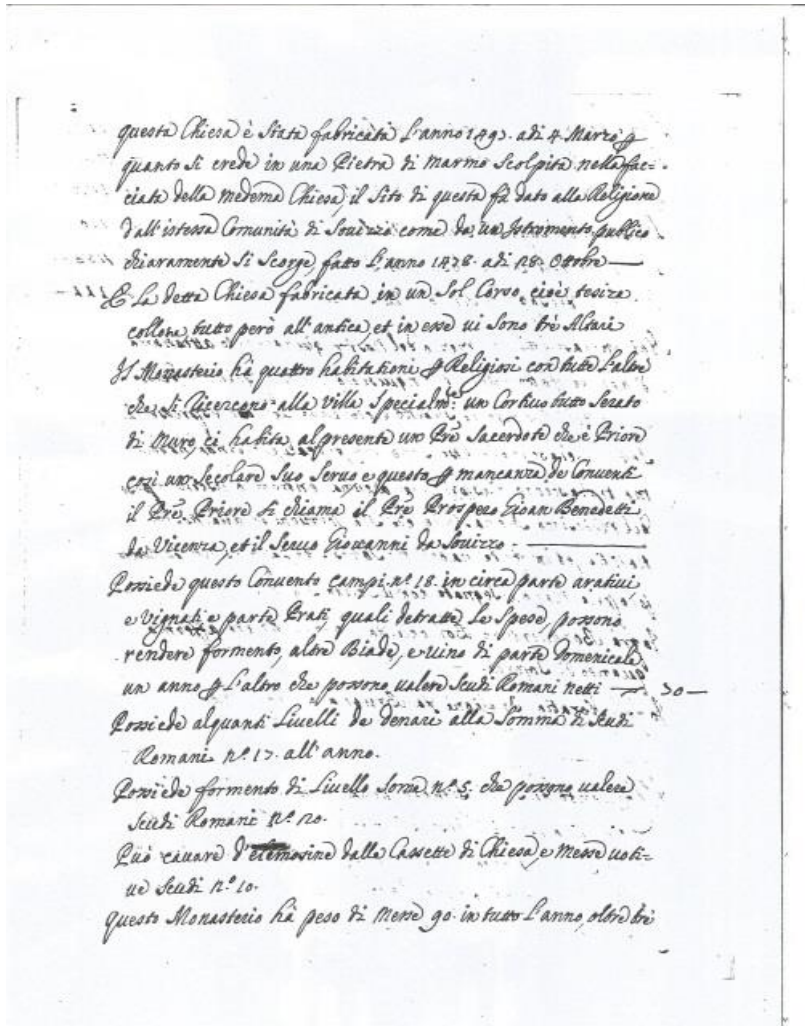 questa Chiesa è stata fabricata l'anno 1493. adi 4. Marzo ꝑ
quanto si crede in una Pietra di Marmo Scolpita nella fac=
ciata della medema Chiesa, il Sito di questa fù dato alla Religione
dall'istessa Comunità di Sovizzo come da un Istromento publico
chiaramente Si Scorge, fatto l'anno 1478. adi 28. Ottobre —
E la detta Chiesa fabricata in un Sol Corpo, cioè
tutto però all'antica, et in esse ui Sono trè Altari
Il Monasterio hà quattro habitationi ꝑ Religiosi con tutte l'altre
che Si ricercono alla Villa Specialm.te un Cortiuo tutto Serato
di Muro, ci habita al presente un Pre Sacerdote che è Priore
così un Secolare Suo Seruo e questo ꝑ mancanza de Conuenti
il Pre Priore si chiama il Pre Prospero Gioan Benedetti
da Vicenza, et il Seruo Giovanni da Sovizzo. —
Possiede questo Convento campi n.º 18. in circa parte aratiui,
e Vignati e parte Prati, quali detratte le Spese, possono
rendere formento, altre Biade, e uino di parte Domenicale
un anno ꝑ l'altro che possono valere Scudi Romani netti — 30 —
Possiede alquanti Livelli de denari alla Somma di Scudi
Romani n.º 17. all'anno.
Possiede formento di Livello n.º 5. che possono valere
Scudi Romani n.º 20.
Può cauare d'elemosine dalla Cassette di Chiesa, e Messe uoti=
ue Scudi n.º 10.
questo Monasterio hà peso di Messe 90. in tutto l'anno, oltre trè